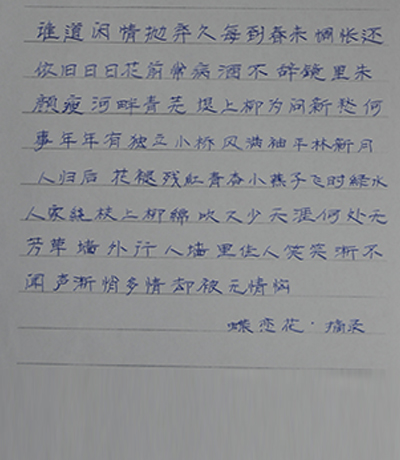 谁道闲情抛弃久每到春来惆怅还
依旧日日花前常病酒不辞镜里朱
颜瘦河畔青芜堤上柳为问新愁何
事年年有独立小桥风满袖平林新月
人归后花褪残红青杏小燕子飞时绿水
人家绕枝上柳绵吹又少天涯何处无
芳草墙外行人墙里佳人笑笑渐不
闻声渐悄多情却被无情恼
蝶恋花·摘录